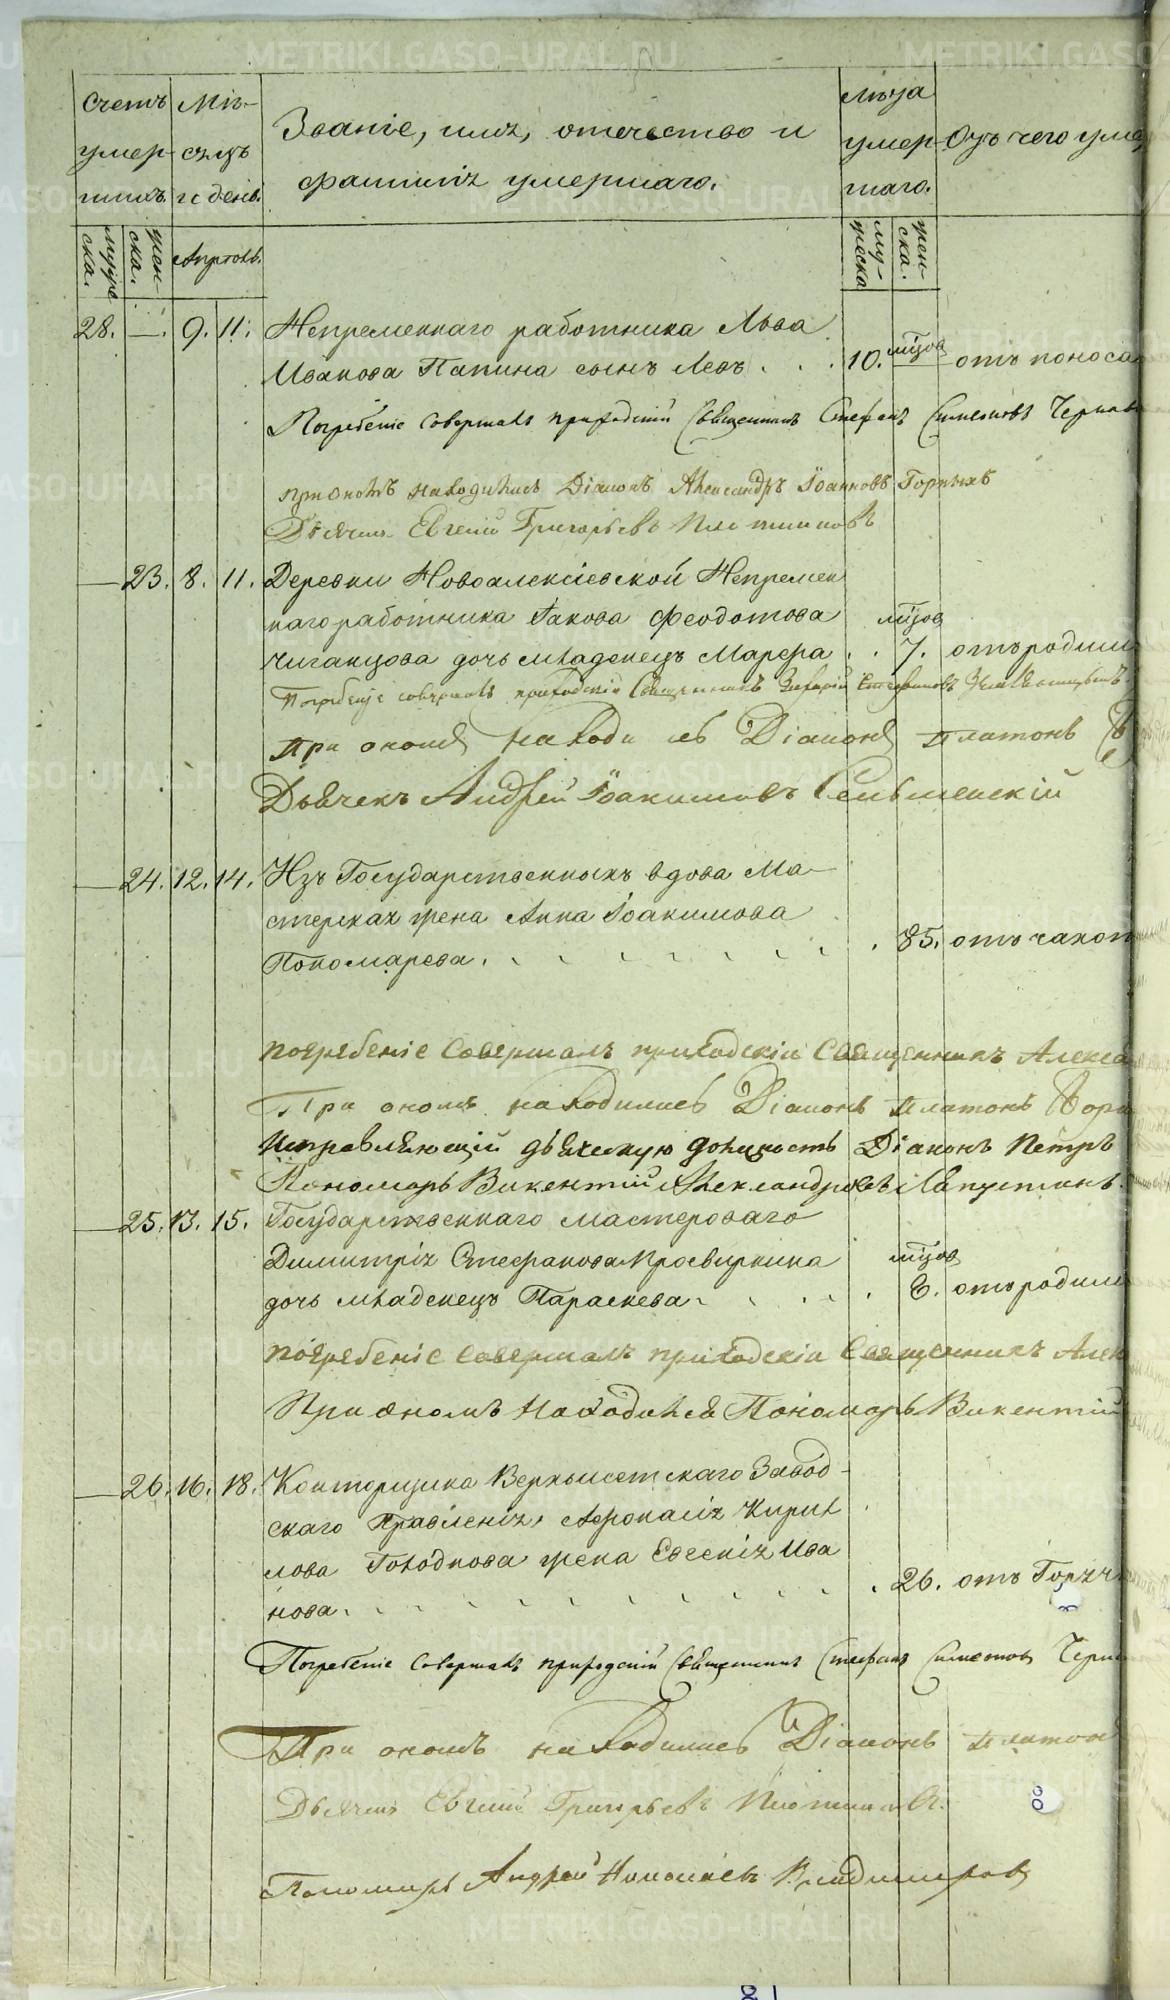 Счетъ умер- шихъ.
Мѣ- сяцъ и день.
Званіе, имя, отечество и
фамилія умершаго.
Лѣта умер- шаго.
Отъ чего уме
мужес ка. жен- ска.
Апрѣль.
му- жеска жен- ска.
28. —. 9. 11. Непременнаго работника Льва
Иванова Папина сынъ Левъ . . . 10. мѣсяцов отъ поноса
Погребеніе совершалъ приходскій Священникъ Стефанъ Симеоновъ
При ономъ находились Діаконъ Александръ Іоанновъ Горныхъ
Дьячекъ Евгеній Григорьевъ Плотниковъ
— 23. 8. 11. Деревни Новоалексіевской Непремен
наго работника Іакова Феодотова
Чиганцова дочь младенецъ Марфа . . мѣсяцов 7. отъ родим
Погребеніе совершалъ приходскій Священникъ Захарій Стефановъ
При ономъ находились Діаконъ Платонъ
Дьячекъ Андрей Іоакимовъ Сельменскій
— 24. 12. 14. Изъ Государственныхъ вдова Ма-
стерская жена Анна Іоакимова
Пономарева . . . . . . . 85. отъ чахот
погребеніе совершалъ приходскій Священникъ Алекса
При ономъ находились Діаконъ Платонъ
Исправляющій дьяческую должность Діаконъ Петръ
Пономарь Викентій Александровъ Лапустинъ.
— 25. 13. 15. Государственнаго мастероваго
Димитрія Стефанова Просвирнина
дочь младенецъ Параскева . . . . мѣсяцов 6. отъ родим
погребеніе совершалъ приходскій Священникъ Алек
При ономъ находился Пономарь Викентій
— 26. 16. 18. Конторщика Верхъисетскаго Завод-
скаго Правленія, Афонасія Кирил
лова Голодкова жена Евгенія Ива
нова . . . . . . . . . 26. отъ Горяч
Погребеніе совершалъ приходскій Священникъ Стефанъ Симеоновъ
При ономъ находились Діаконъ Платонъ
Дьячекъ Евгеній Григорьевъ Плотниковъ.
Пономарь Андрей Николаевъ Владимировъ
METRIKI.GASO-URAL.RU